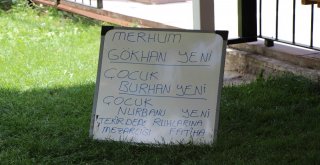 MERHUM
GÖKHAN YENİ
ÇOCUK
BURHAN YENİ
ÇOCUK
NURBANU YENİ
TEKİRDERE RUHLARINA
MEZARLIĞI FATİHA